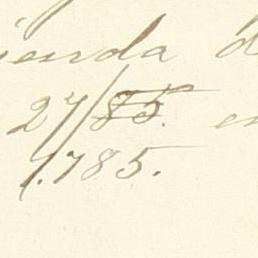 ienda d
27/85. en
1.785.